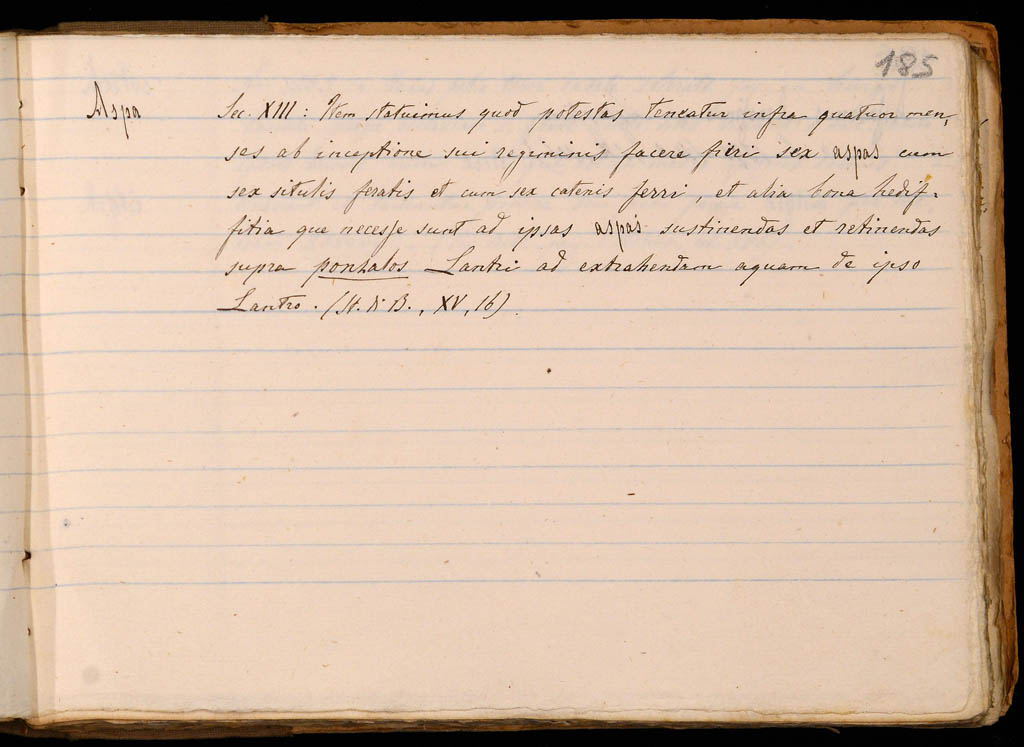 185
Aspa Sec. XIII: Item statuimus quod potestas teneatur infra quatuor men,
ses ab inceptione sui regiminis facere fieri sex aspas cum
sex situlis feratis et cum sex catenis ferri, et alia bona hedif-
fitia que necesse sunt ad ipsas aspas sustinendas et retinendas
supra pontalos Lantri ad extrahendam aquam de ipso
Lantro. (St. di B., XV, 16)